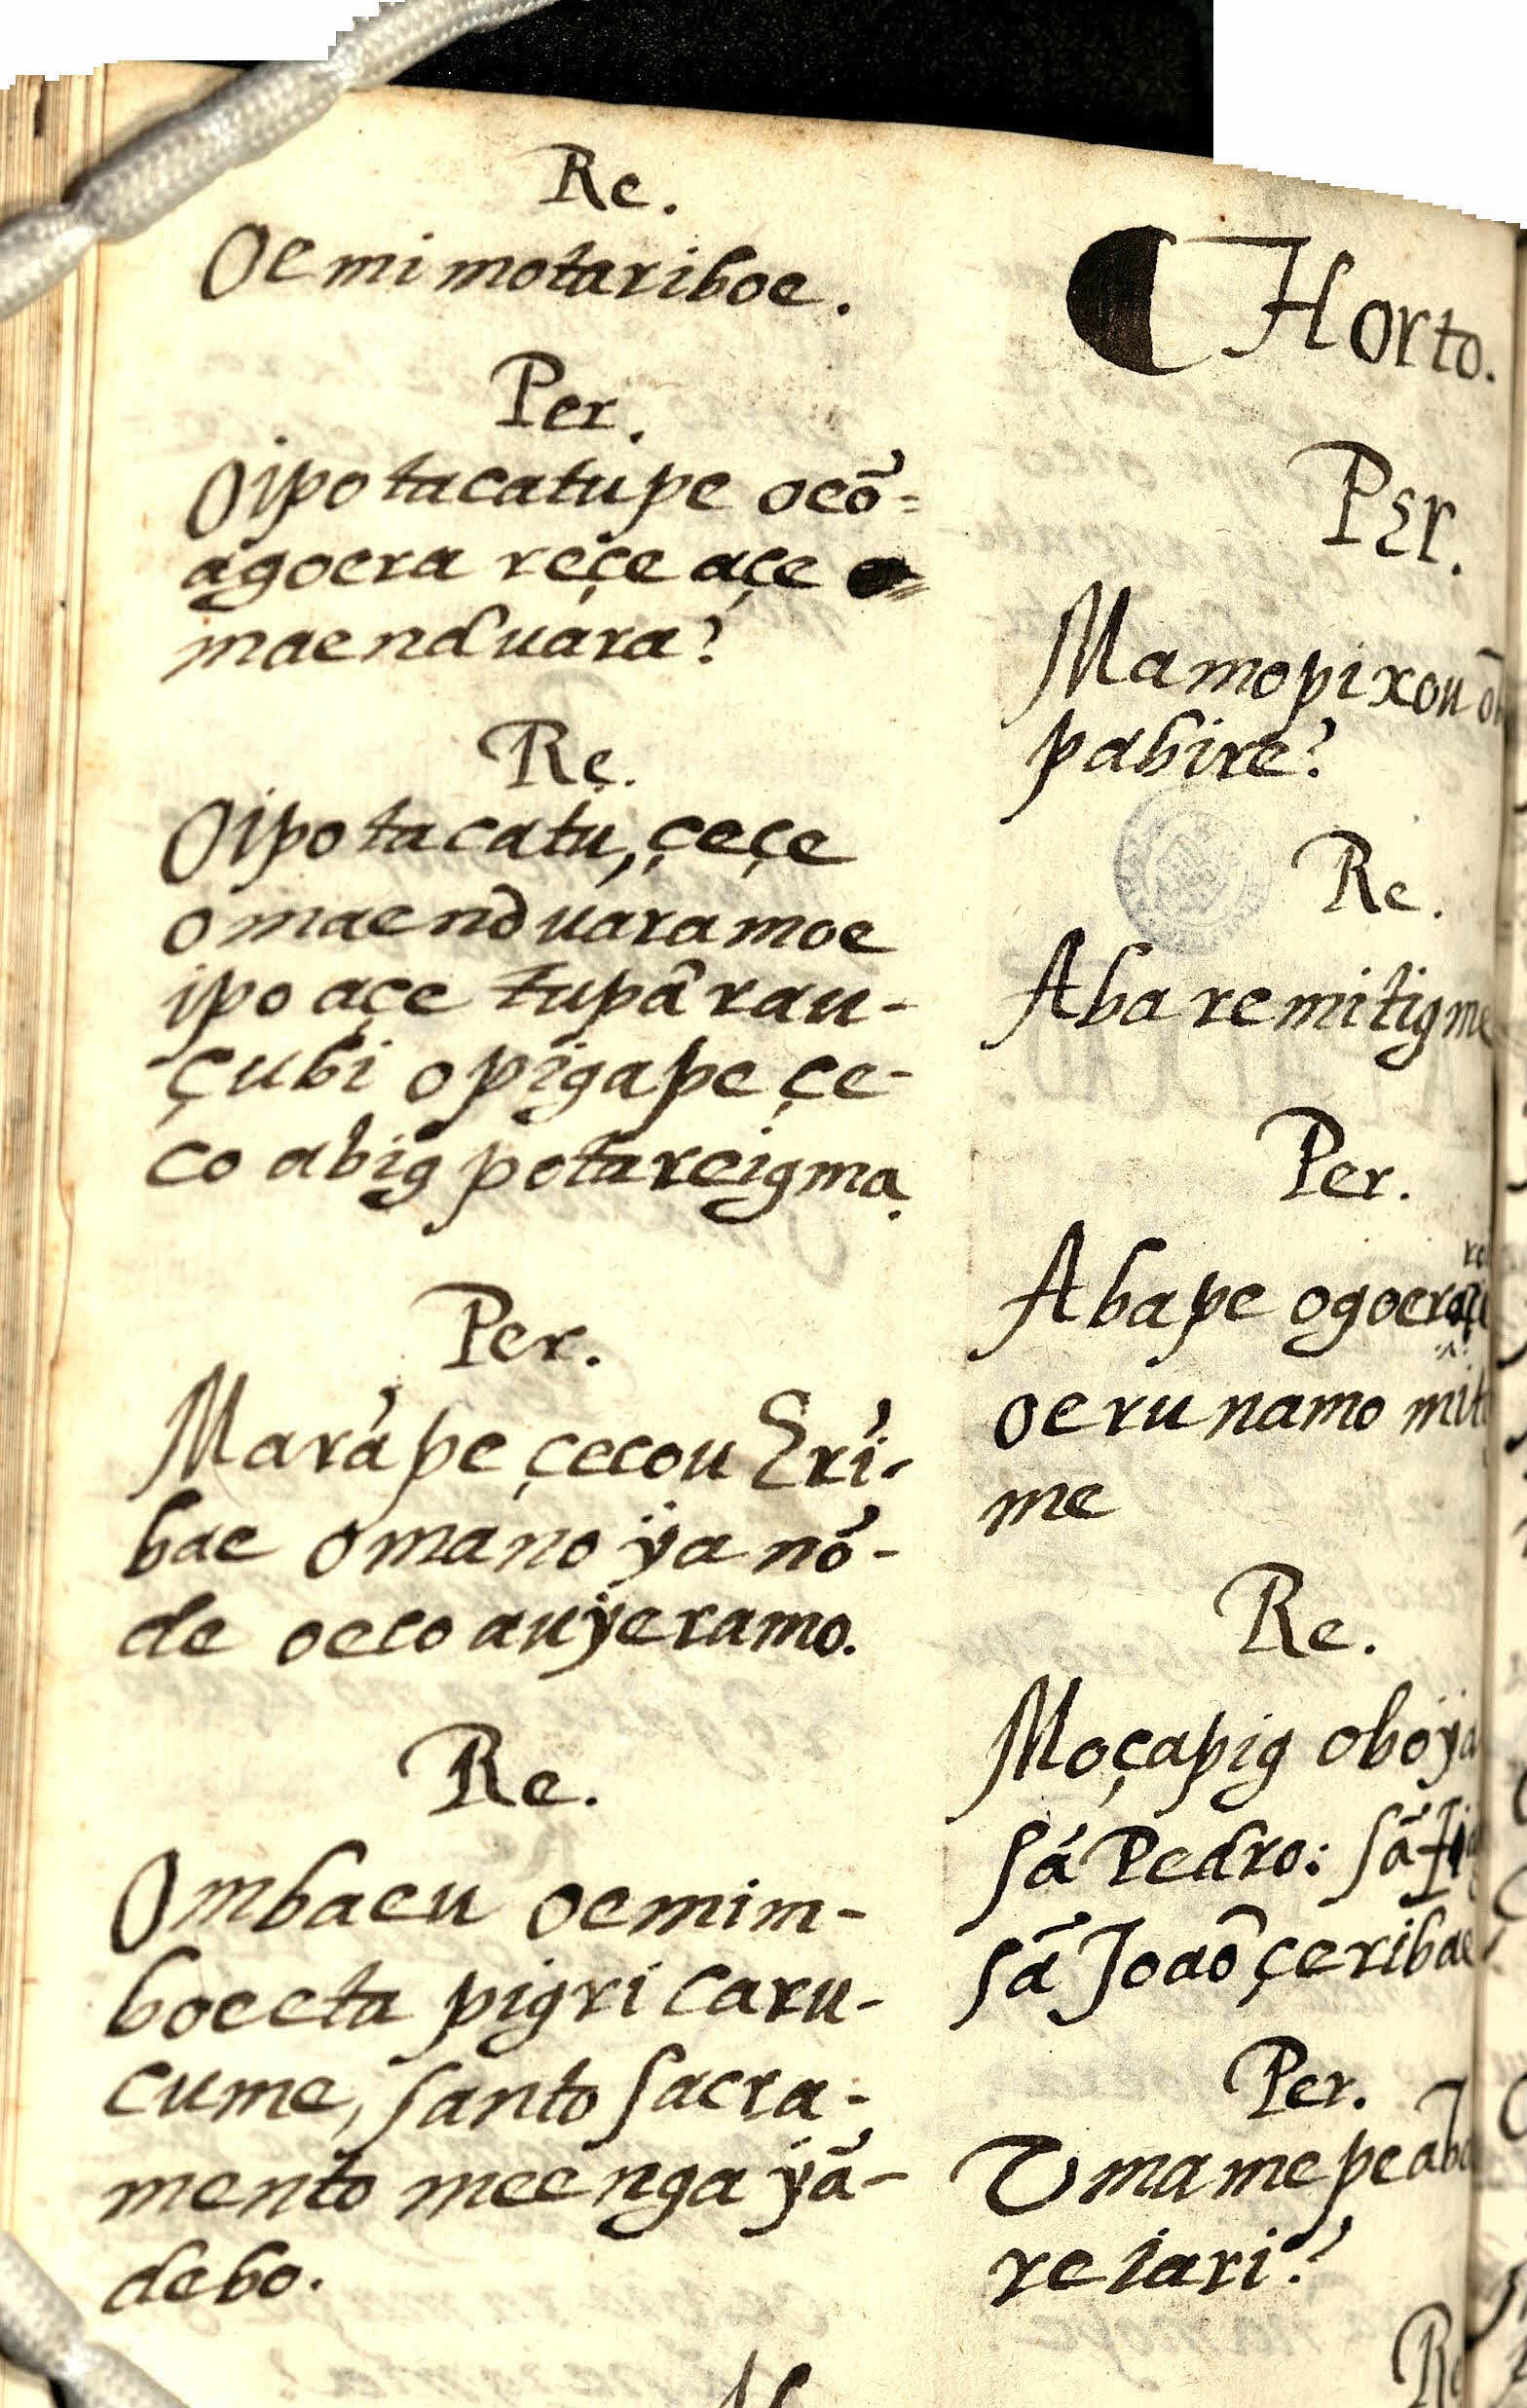 Re.
Oemimotariboe.
Per.
Oipotacatupe oecõ-
agoera reçe açe
maenduara?
Re.
Oipotacatu, çeçe
omaenduaramoe
ipo açe tupã rau-
çubi opigape çe-
co abig potareigma.
Per.
Marãpe çecou Eri-
bae omano ÿa nõ-
de oeco auÿeramo.
Re.
Ombaeu oemim-
boeeta pigri caru-
cume, santo sacra-
mento meenga ÿã-
debo.
Horto.
Per.
Mamopixou
pabire?
Re.
Aba remitigme
Per.
Abape
oerunamo
me
Re.
Moçapig oboÿa
sã Pedro: sã
sã Joaõ çeribae
Per.
Umamepe
reiari?
Re